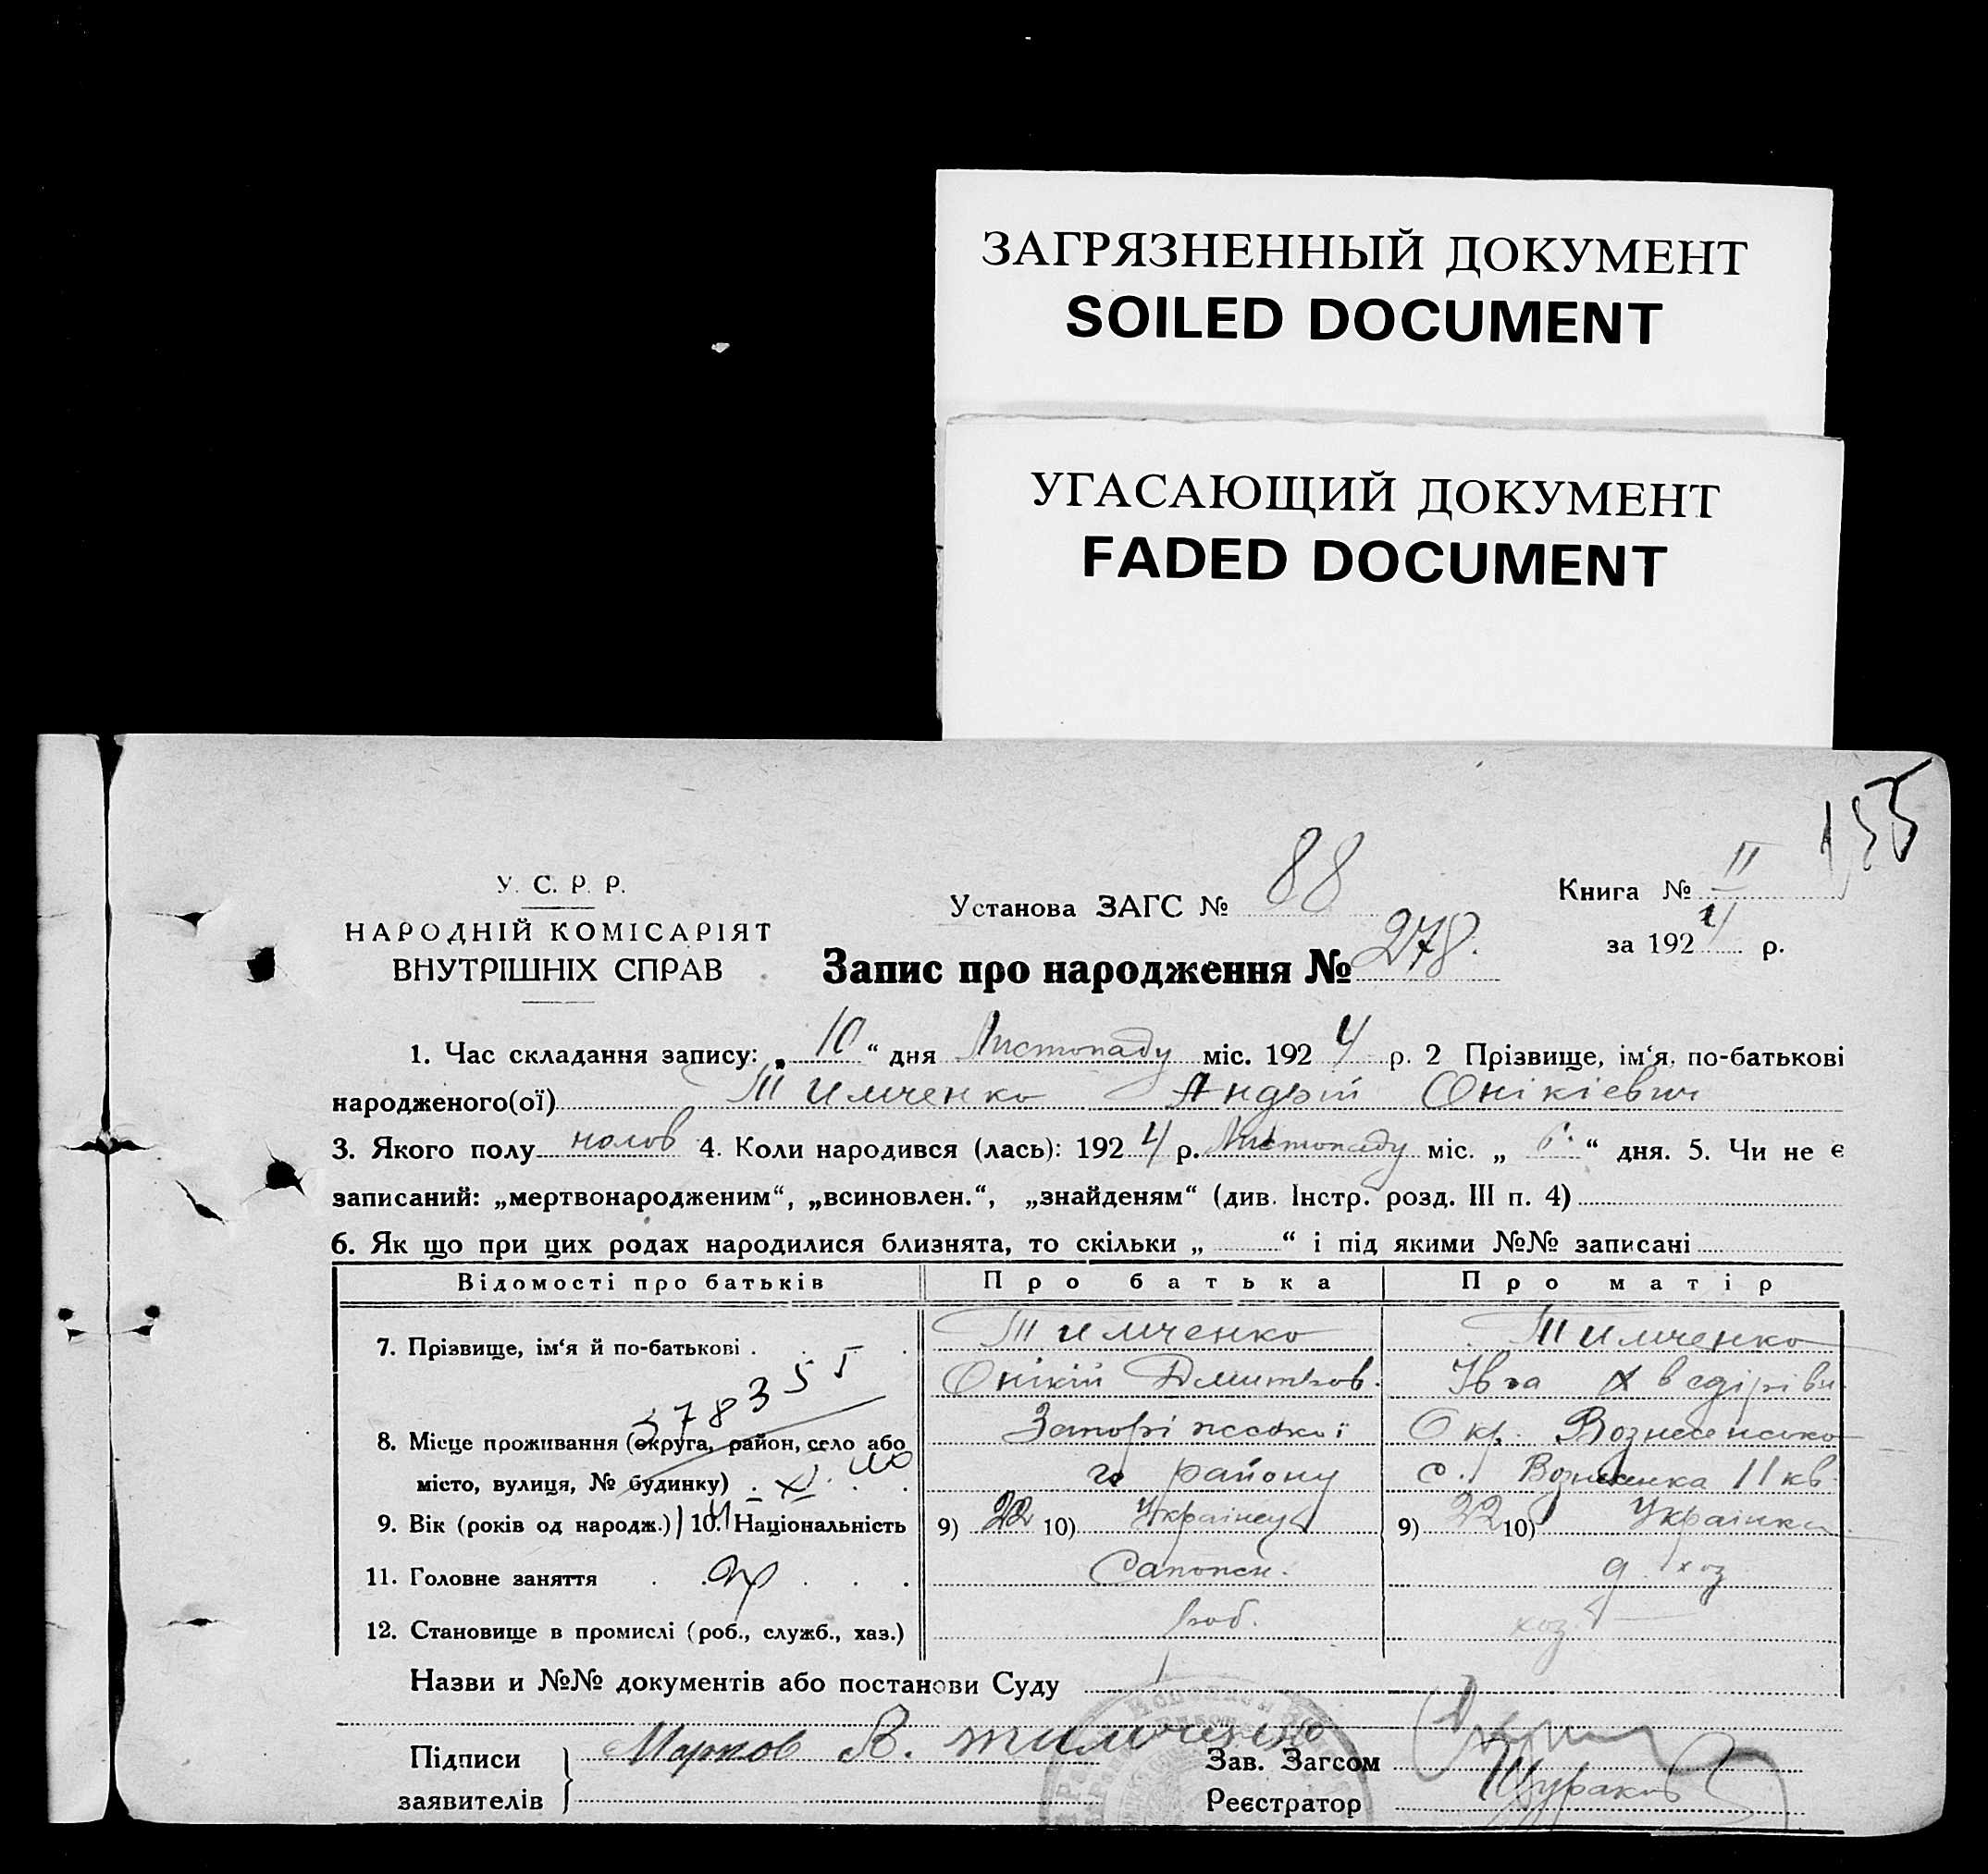 ЗАГРЯЗНЕННЫЙ ДОКУМЕНТ
SOILED DOCUMENT
УГАСАЮЩИЙ ДОКУМЕНТ
FADED DOCUMENT
155
У. С. Р. Р.
НАРОДНІЙ КОМІСАРІЯТ
ВНУТРІШНІХ СПРАВ
Установа ЗАГС № 88
Книга № II
за 1924 р.
Запис про народження № 278.
1. Час складання запису: „ 10 “ дня Листопаду міс. 1924 р. 2 Прізвище, ім‘я, по-батькові
народженого(ої) Тимченко Андрій Онікієвич
3. Якого полу 4. Коли народився (лась): 1924 р. Листопаду міс. „ 6. “ дня. 5. Чи не є
записаний: „мертвонародженим“, „всиновлен.“, „знайденям“ (див. Інстр. розд. III п. 4)
6. Як що при цих родах народилися близнята, то скільки „ “ і під якими №№ записані
Відомості про батьків Про батька Про матір
7. Прізвище, ім‘я й по-батькові . Тимченко Тимченко
Онікій Дмитров. Івга Хведірівн.
378355
8. Місце проживання (округа, район, село або Запоріжської Окр. Вознесенсько
місто, вулиця, № будинку) го району с. Вознесенка 11 кв.
9. Вік (років од народж.) 10. Національність 9) 22 10) Українец 9) 22 10) Українка
11. Головне заняття Сапожн. д. хоз
12. Становище в промислі (роб., служб., хаз.) роб. хоз.
Назви и №№ документів або постанови Суду
Підписи заявителів Марков В. тимченко
Зав. Загсом
Реєстратор